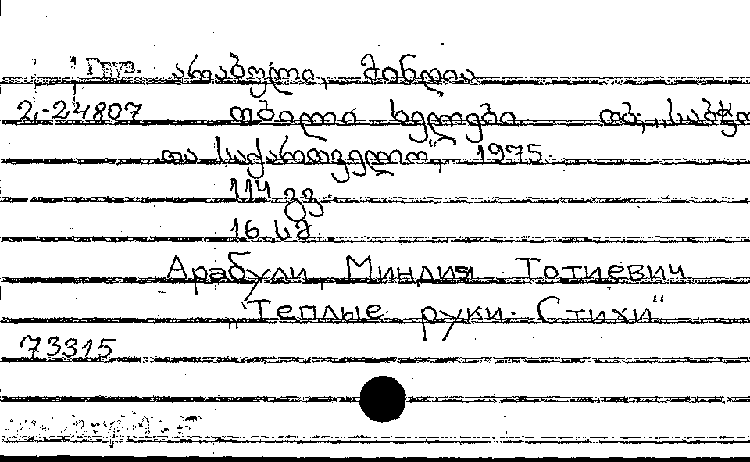 Груз. არაბული, მინდია
2-24807 თბილი ხელები თბ; „საბჭო
თა საქართველო“, 1975.
114 გვ.
16 სმ
Арабули, Миндия Тотиевич
„Теплые руки. Стихи“
73315